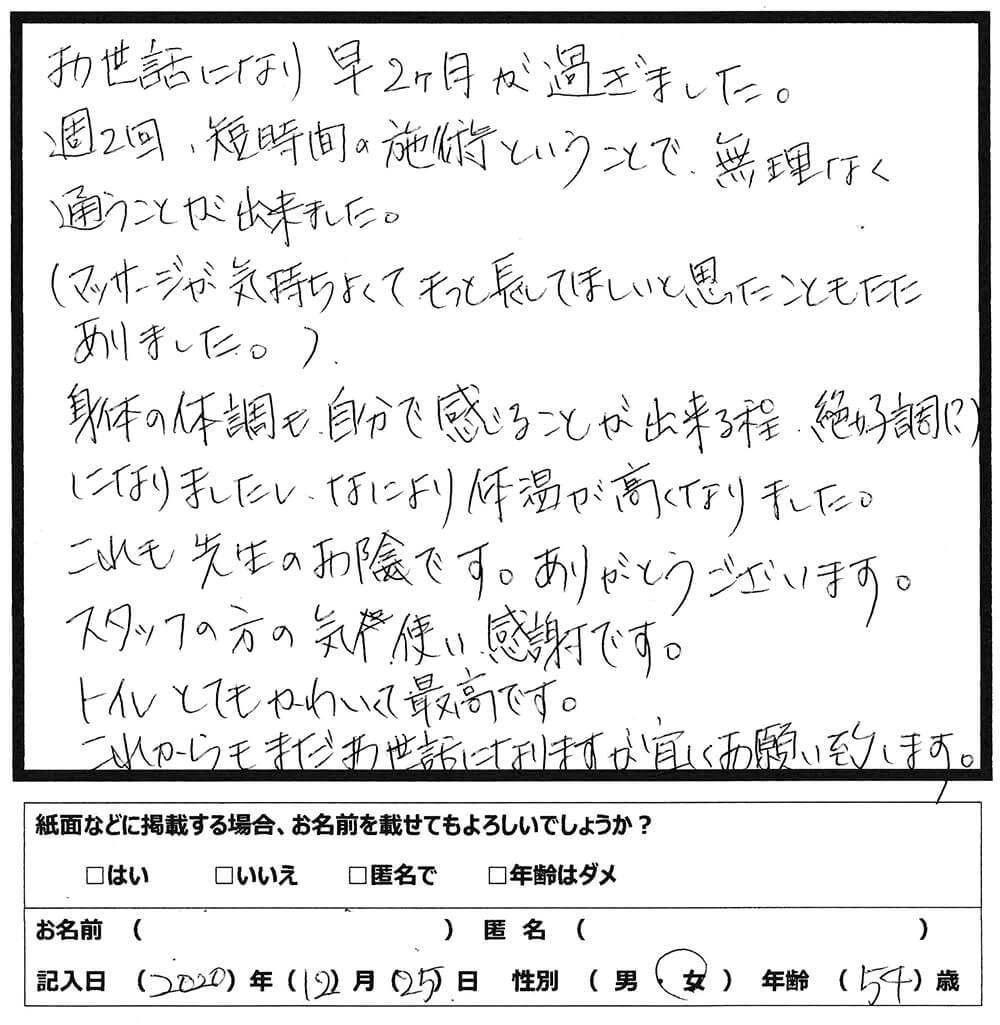 お世話になり早2ヶ月が過ぎました。
週2回、短時間の施術ということで、無理なく
通うことが出来ました。
(マッサージが気持ちよくてもっと長くしてほしいと思ったことも
ありました。)
身体の体調も、自分で感じることが出来る程、絶好調に
になりましたし、なにより体温が高くなりました。
これも先生のお陰です。ありがとうございます。
スタッフの方の気使い感謝です。
トイレとてもかわいくて最高です。
これからもまだお世話になりますが宜しくお願い致します。
紙面などに掲載する場合、お名前を載せてもよろしいでしょうか？
□はい □いいえ □匿名で □年齢はダメ
お名前 ( ) 匿名 ( )
記入日 (2020)年(12)月(25)日 性別 (男・女) 年齢 (54)歳